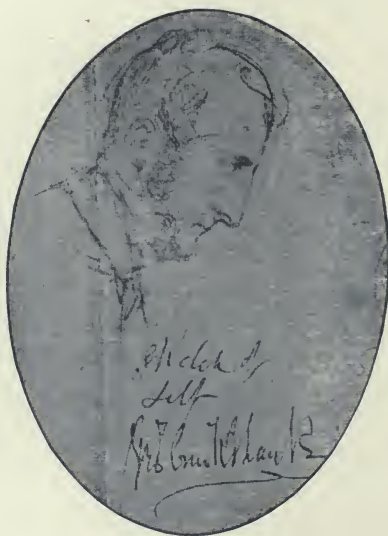 Sketch of
self
Geo Cruikshank